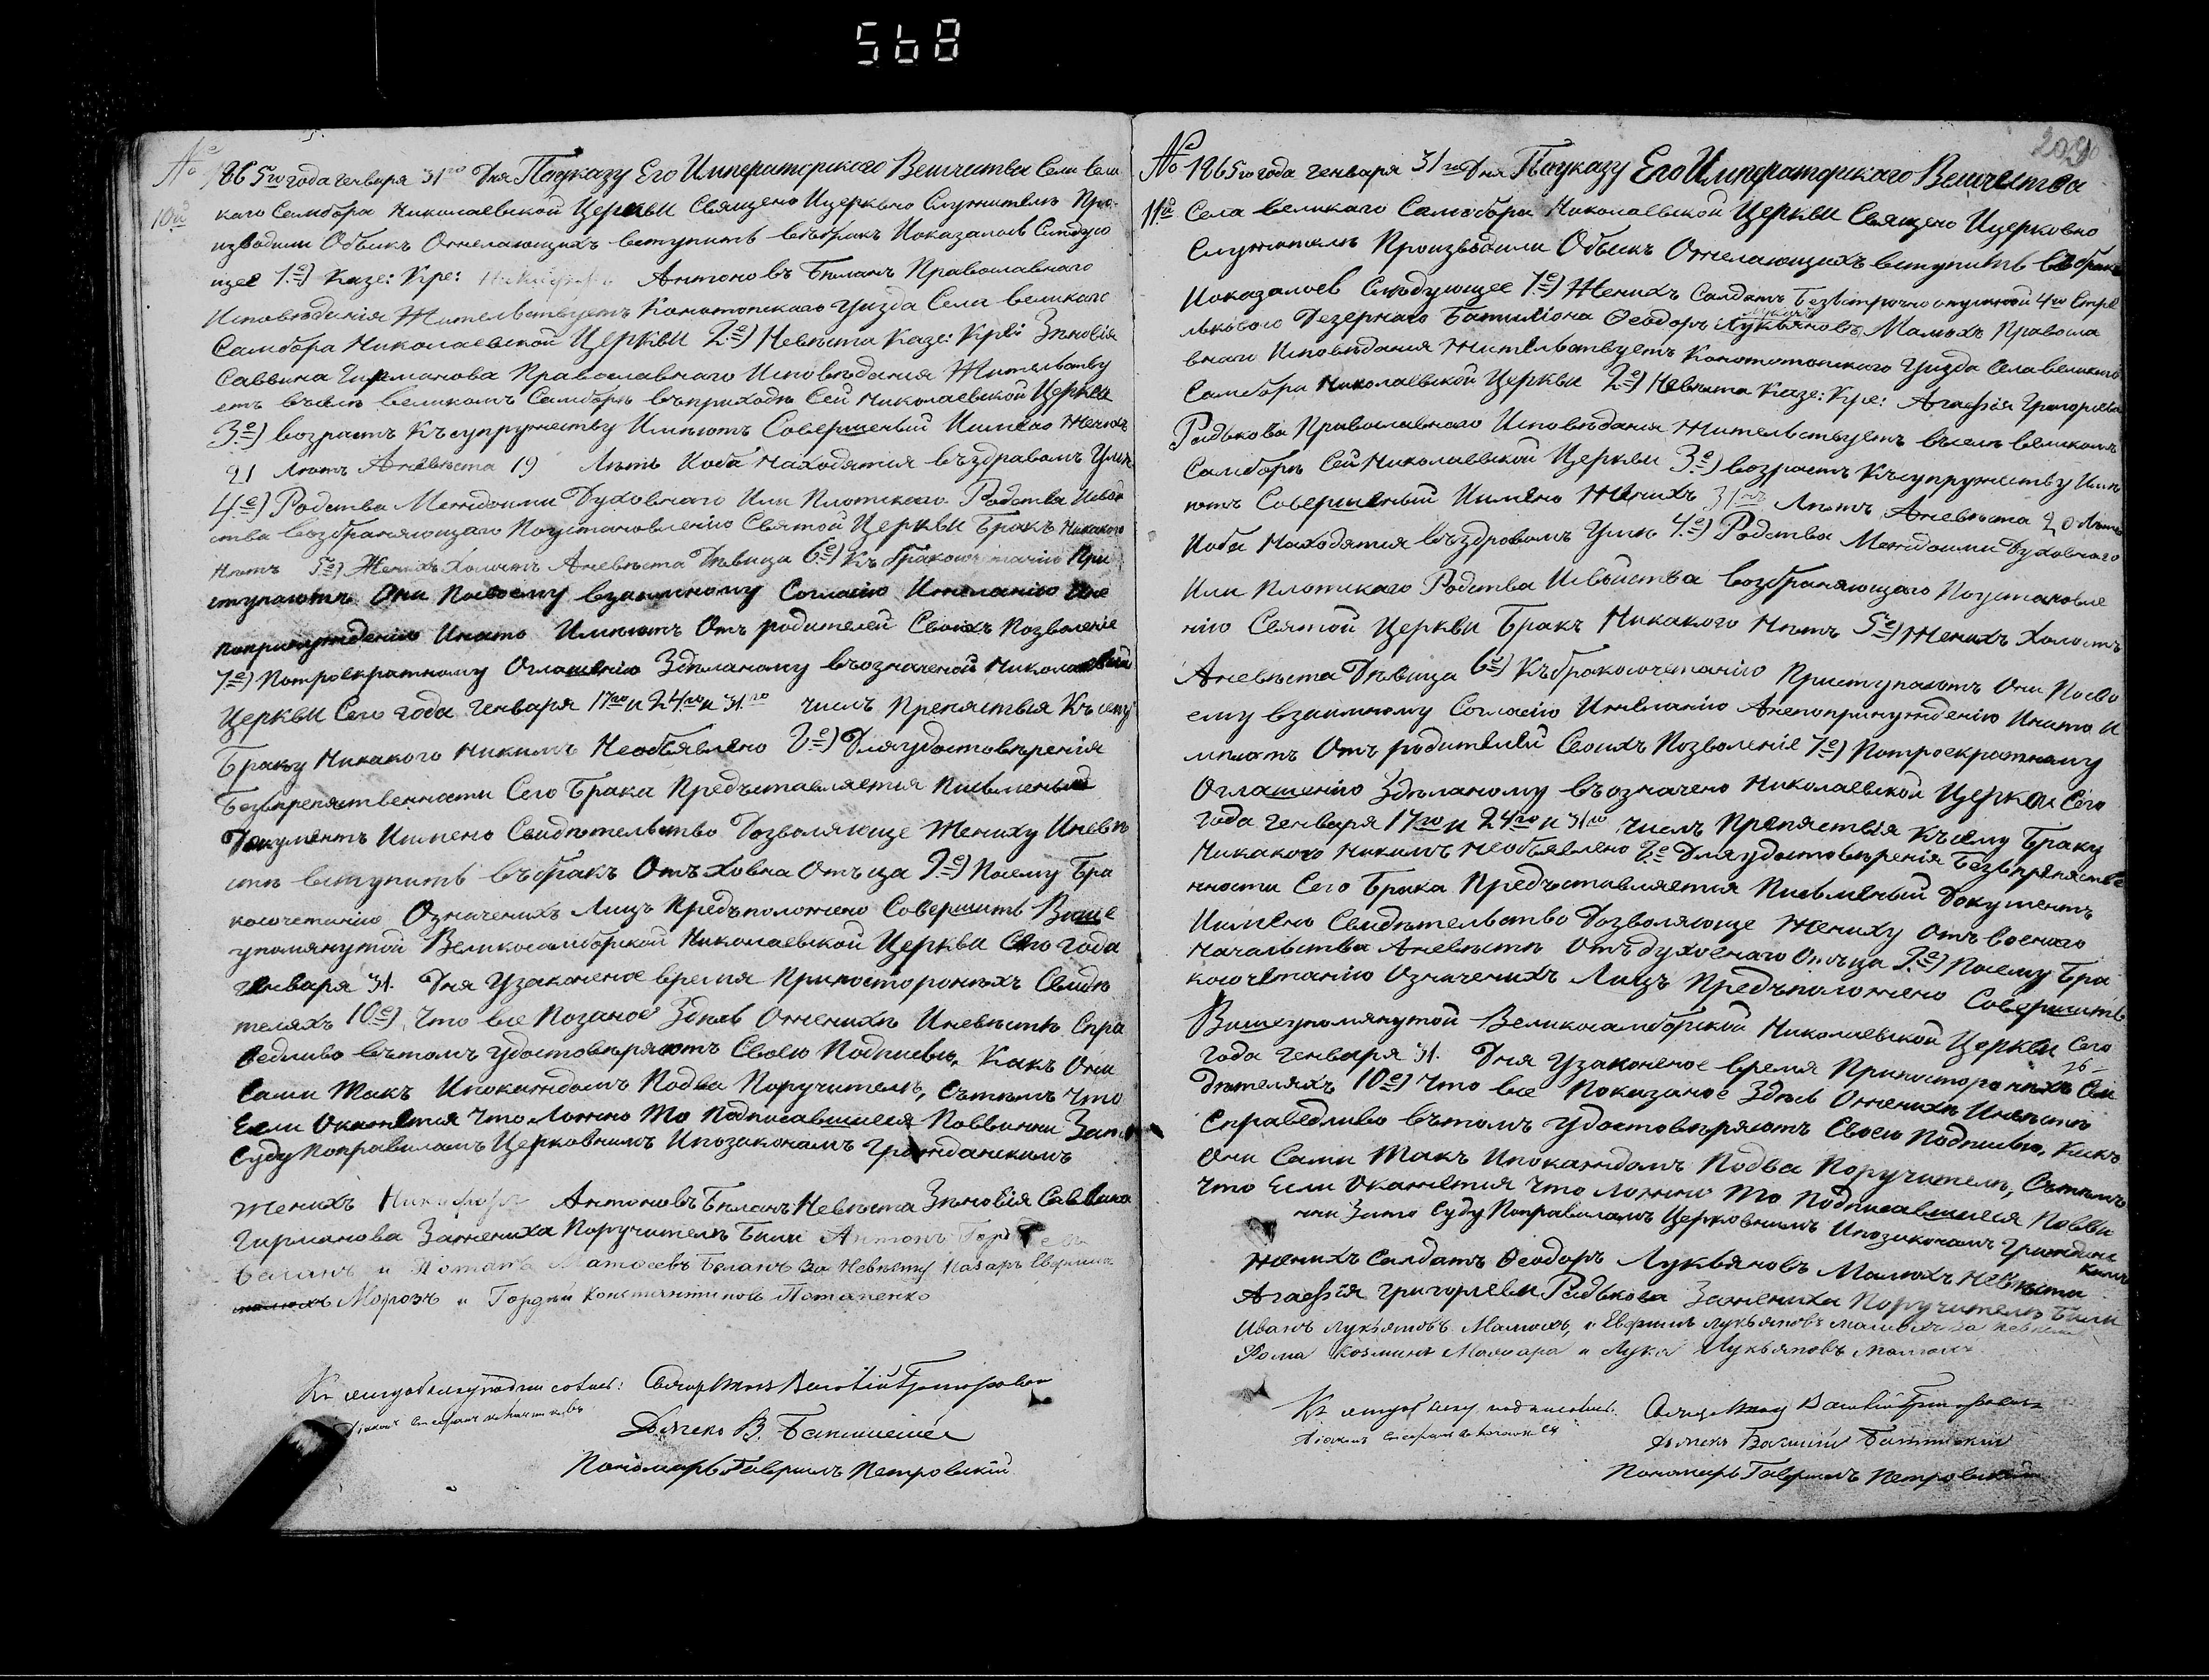 568
209
№ 1865го года генваря 31го Дня Поуказу Его Императорского Величества Села Вели
10й каго Самбора Николаевской Церкви Священо Ицерковно Служители Про
изводили Обыск Ожелающихъ вступить въбракъ Иоказалось Следую
щее 1.е) Казе: Кре: Никифоръ Антоновъ Биланъ Православнаго
Исповеданія Жительствуетъ Конотопскаго Уизда Села великаго
Самбора Николаевской Церкви 2.е) Невеста Казе: Кре: Зеновія
Саввина Гирманова Православнаго Исповеданія Жительству
етъ въселе великомъ Самборе въприходе Сей Николаевской Церкви
3.е) возрастъ Ксупружеству Имеютъ Совершеный Иимено Женихъ
21 Летъ Аневеста 19 Летъ Иоба Находятся въздравомъ Уме
4.е) Родства Междоими Духовнаго Или Плотскаго Родства Исвой
ства возбраняющаго Поустановленію Святой Церкви Бракъ Никакого
Нетъ 5.е) Женихъ Холостъ Аневеста Девица 6.е) Къбракосочетанію При
ступаютъ Они Посвоему взаимному Согласію Ижеланію Ане
попринужденію Инато Имеютъ Отъ родителей Своихъ Позволеніе
7.е) Потроекратному Оглашенію Зделаному въозначеной Николаевской
Церкви Сего года генваря 17го и 24го и 31го числъ Препятствія Къ сему
Браку Никакого Никимъ Необъявлено 8.е) Дляудостоверенія
Безпрепятственности Сего Брака Предъставляется Письменый
Документъ Иимено Свидетельство Дозволяюще Жениху Иневе
сте вступить въбракъ Отъ Ховна Отъца 9.е) Посему Бра
косочетанію Означенихъ Лицъ Предъположено Совершить Више
упомянутой Великосамборской Николаевской Церкви Сего года
генваря 31. Дня Узаконеное время Припосторонихъ Свиде
теляхъ 10.е) Что все Позаное Здесь Ожених Иневесте Спра
ведливо вътомъ Удостоверяютъ Своею Подписью, Какъ Они
Сами Такъ Ипокаждомъ Подва Поручителе, Сътемъ Что
Если Окажется Что Ложно То Подписавшиеся Повинни Зато
Суду Поправиламъ Церковнимъ Ипозаконамъ Гражданскимъ
Женихъ Никифоръ Антоновъ Биланъ Невеста Зеновія Саввина
Гирманова Зажениха Поручителе Били Антонъ
Беланъ и Потапъ Матфеевъ Беланъ За Невесту Назаръ
Морозъ и Гордей Константиновъ Потапенко
Къ сему обыску подписались: Священникъ Василій Григоровичъ
Дьячекъ В.
Пономарь Гавриилъ Петровскій
№ 1865го года генваря 31го Дня Поуказу Его Императорского Величества
11.й Села великаго Самбора Николаевской Церкви Священо Ицерковно
Служители Произъводили Обыск Ожелающихъ вступить въбракъ
Иоказалось Следующее 1.е) Женихъ Солдатъ Безъсрочно отпускной 4го Стре
льковаго Резернаго Баталіона Феодоръ Лукьяновъ Малюхъ Правосла
внаго Исповеданія Жительствуетъ Конотопского Уизда Села великого
Самбора Николаевской Церкви 2.е) Невеста Казе: Кре: Агафія Григориева
Редькова Православнаго Исповеданія Жительствуетъ въселе великомъ
Самборе Сей Николаевской Церкви 3.е) возрастъ Ксупружеству Име
ютъ Совершеный Иимено Женихъ 31 Летъ Аневеста 20 Летъ
Иоба Находятся въздравомъ Уме 4.е) Родства Междоими Духовнаго
Или Плотскаго Родства Исвойства возбраняющаго Поустановле
нію Святой Церкви Бракъ Никакого Нетъ 5.е) Женихъ Холостъ
Аневеста Девица 6.е) Къбракосочетанію Приступаютъ Они Посво
ему взаимному Согласію Ижеланію Анепопринужденію Инато И
меютъ Отъ родителей Своихъ Позволеніе 7.е) Потроекратному
Оглашенію Зделаному въозначено Николаевской Церкви Сего
года генваря 17го и 24го и 31го числъ Препятствія Къ сему Браку
Никакого Никимъ Необъявлено 8.е Дляудостоверенія Безъпрепятстве
нности Сего Брака Предъставляется Письменый Документъ
Иимено Свидетельство Дозволяюще Жениху Отъ военаго
Начальства Аневесте Отъдуховнаго Отъца 9.е) Посему Бра
косочетанію Означенихъ Лицъ Предъположено Совершить
Вишеупомянутой Великосамборской Николаевской Церкви Сего
года генваря 31. Дня Узаконеное время Припосторонихъ Сви
детеляхъ 10.е) Что все Показаное Здесь Ожених Иневесте
Справедливо вътомъ Удостоверяютъ Своею Подписью, Какъ
Они Сами Такъ Ипокаждомъ Подва Поручителе, Сътемъ
Что Если Окажется Что Ложно То Подписавшиеся Повви
нни Зато Суду Поправиламъ Церковнимъ Ипозаконамъ Граждан
скимъ
Женихъ Солдатъ Феодоръ Лукьяновъ Малюхъ Невеста
Агафія Григориева Редькова Зажениха Поручителе Били
Иванъ Лукьяновъ Малюхъ, и Ефримъ Лукьяновъ Малюхъ За невесту
Фома Козминъ и Лука Лукьяновъ
Къ сему обыску подписались. Священникъ Василій Григоровичъ
Дьячекъ Василий
Пономарь Гавриилъ Петровскій